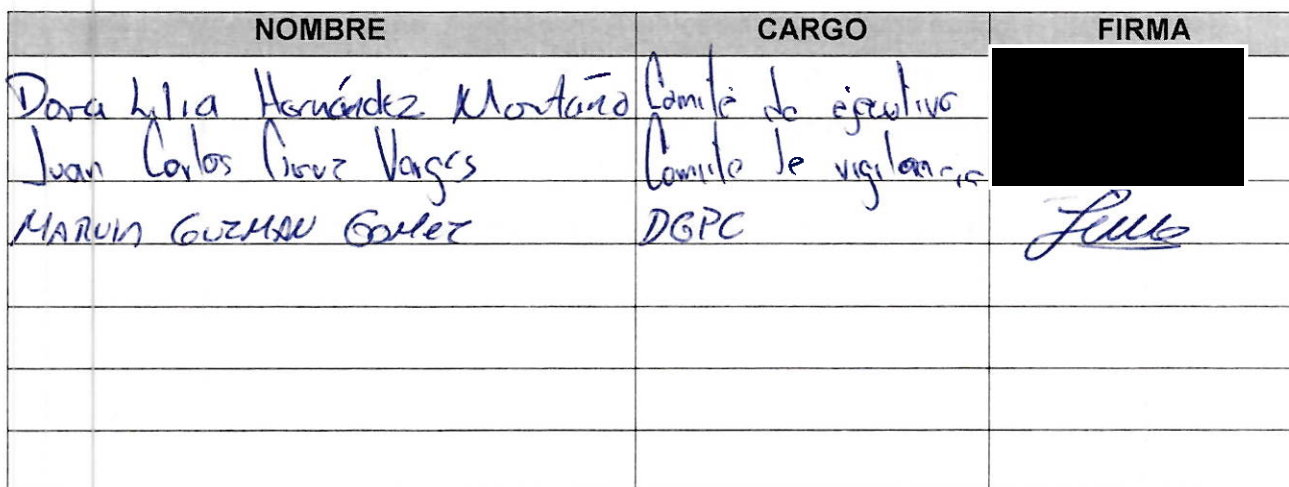 NOMBRE CARGO FIRMA
Dora Lilia Hernández Montaño Comité de ejecutivo
Juan Carlos Vargas Comite de vigilancia
MARVIN GUZMAN GOMEZ DGPC